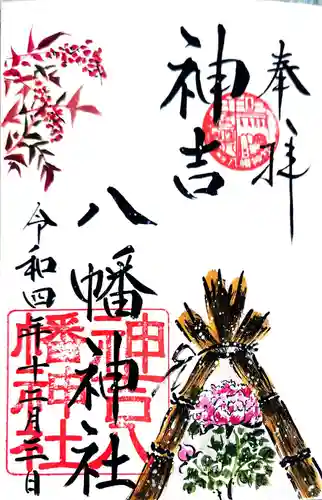 奉拝
神吉
八幡神社
令和四年十二月二十日
神吉八幡神社